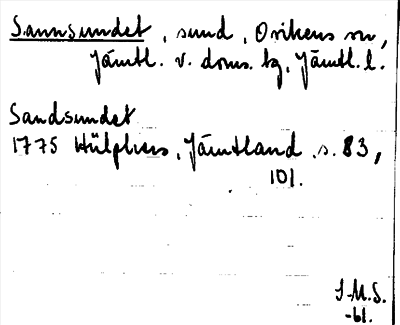 Sannsundet, sund, Ovikens sn,
Jämtl. v. doms. tg, Jämtl. l.
Sandsundet
1775 Hülphers, Jämtland s. 83,
101.
J.M.S.
-61.